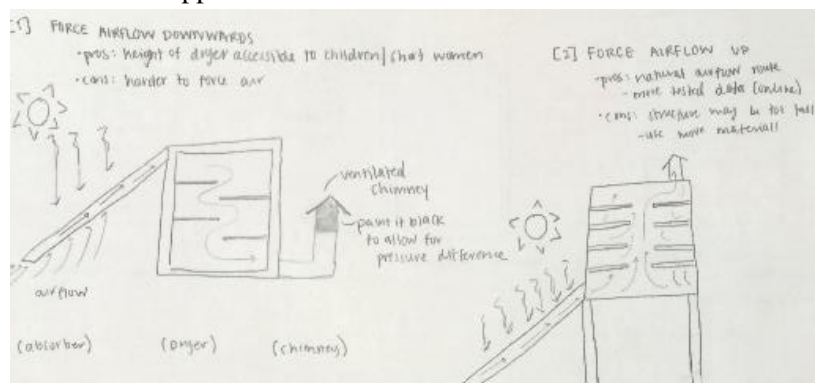 [1] FORCE AIRFLOW DOWNWARDS
• pros: height of dryer accessible to children/short women
• cons: harder to force air
ventilated
chimney
paint it black
to allow for
pressure difference
airflow
(absorber) (Dryer) (chimney)
[2] FORCE AIRFLOW UP
• pros: natural airflow route
- more tested data (online)
• cons: structure may be too tall
- use more material!